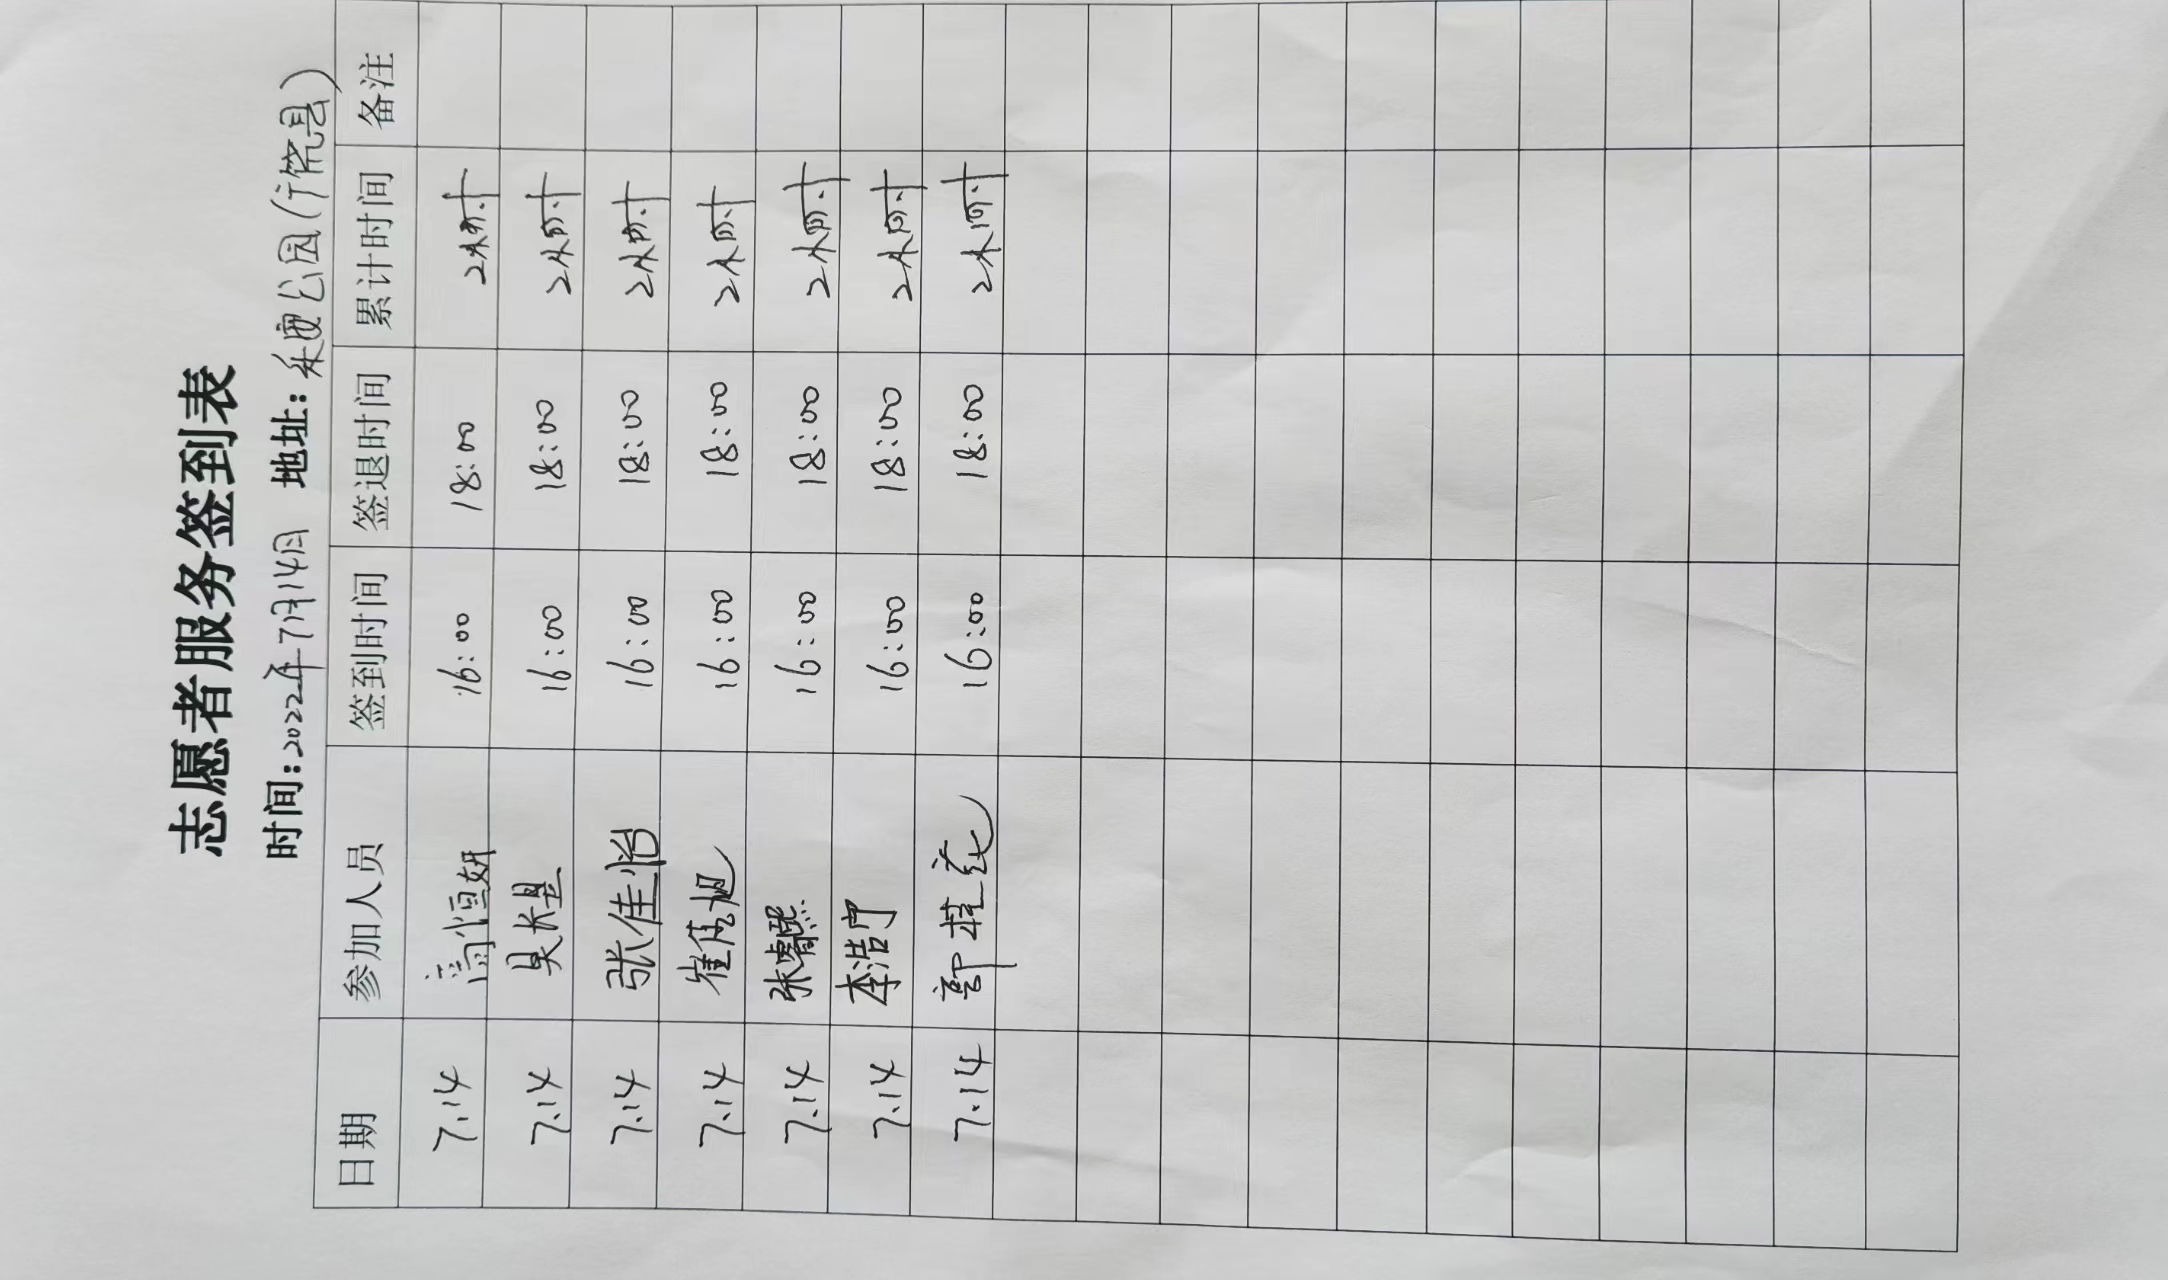 志愿者服务签到表
时间:2022年7月14日 地址:乐园公园(广饶县)
日期 参加人员 签到时间 签退时间 累计时间 备注
7.14 高恒妍 16:00 18:00 2小时
7.14 吴长昊 16:00 18:00 2小时
7.14 张佳怡 16:00 18:00 2小时
7.14 崔伍旭 16:00 18:00 2小时
7.14 张睿熙 16:00 18:00 2小时
7.14 李浩宁 16:00 18:00 2小时
7.14 郭桂花 16:00 18:00 2小时